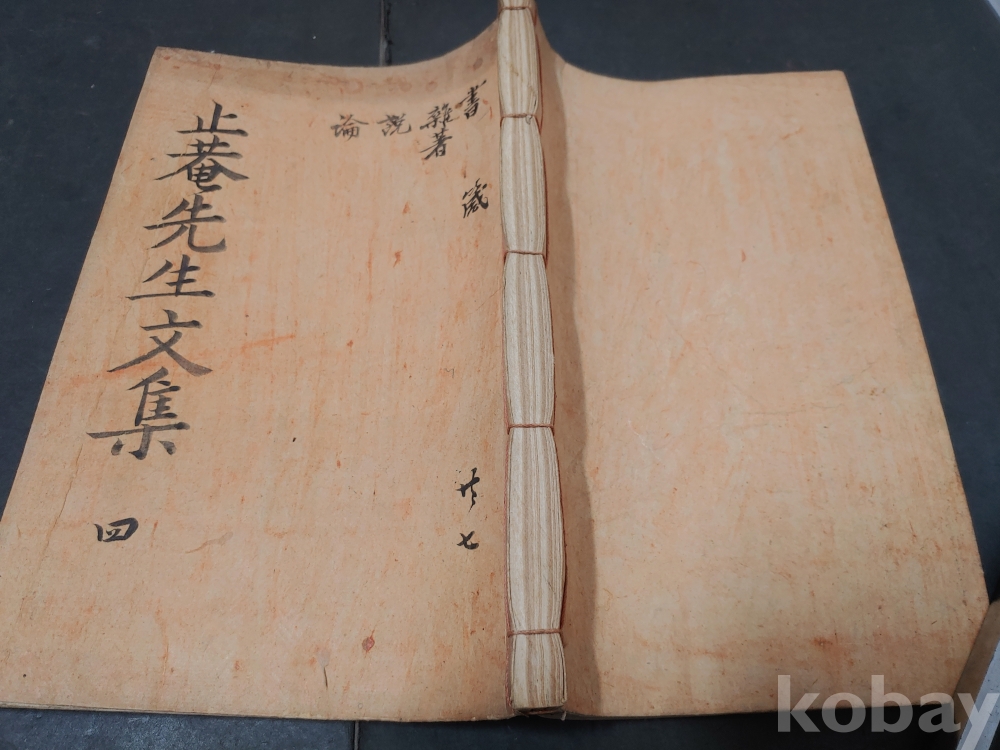 止菴先生文集 四
書 箴
雜著
說
論
共七
kobay